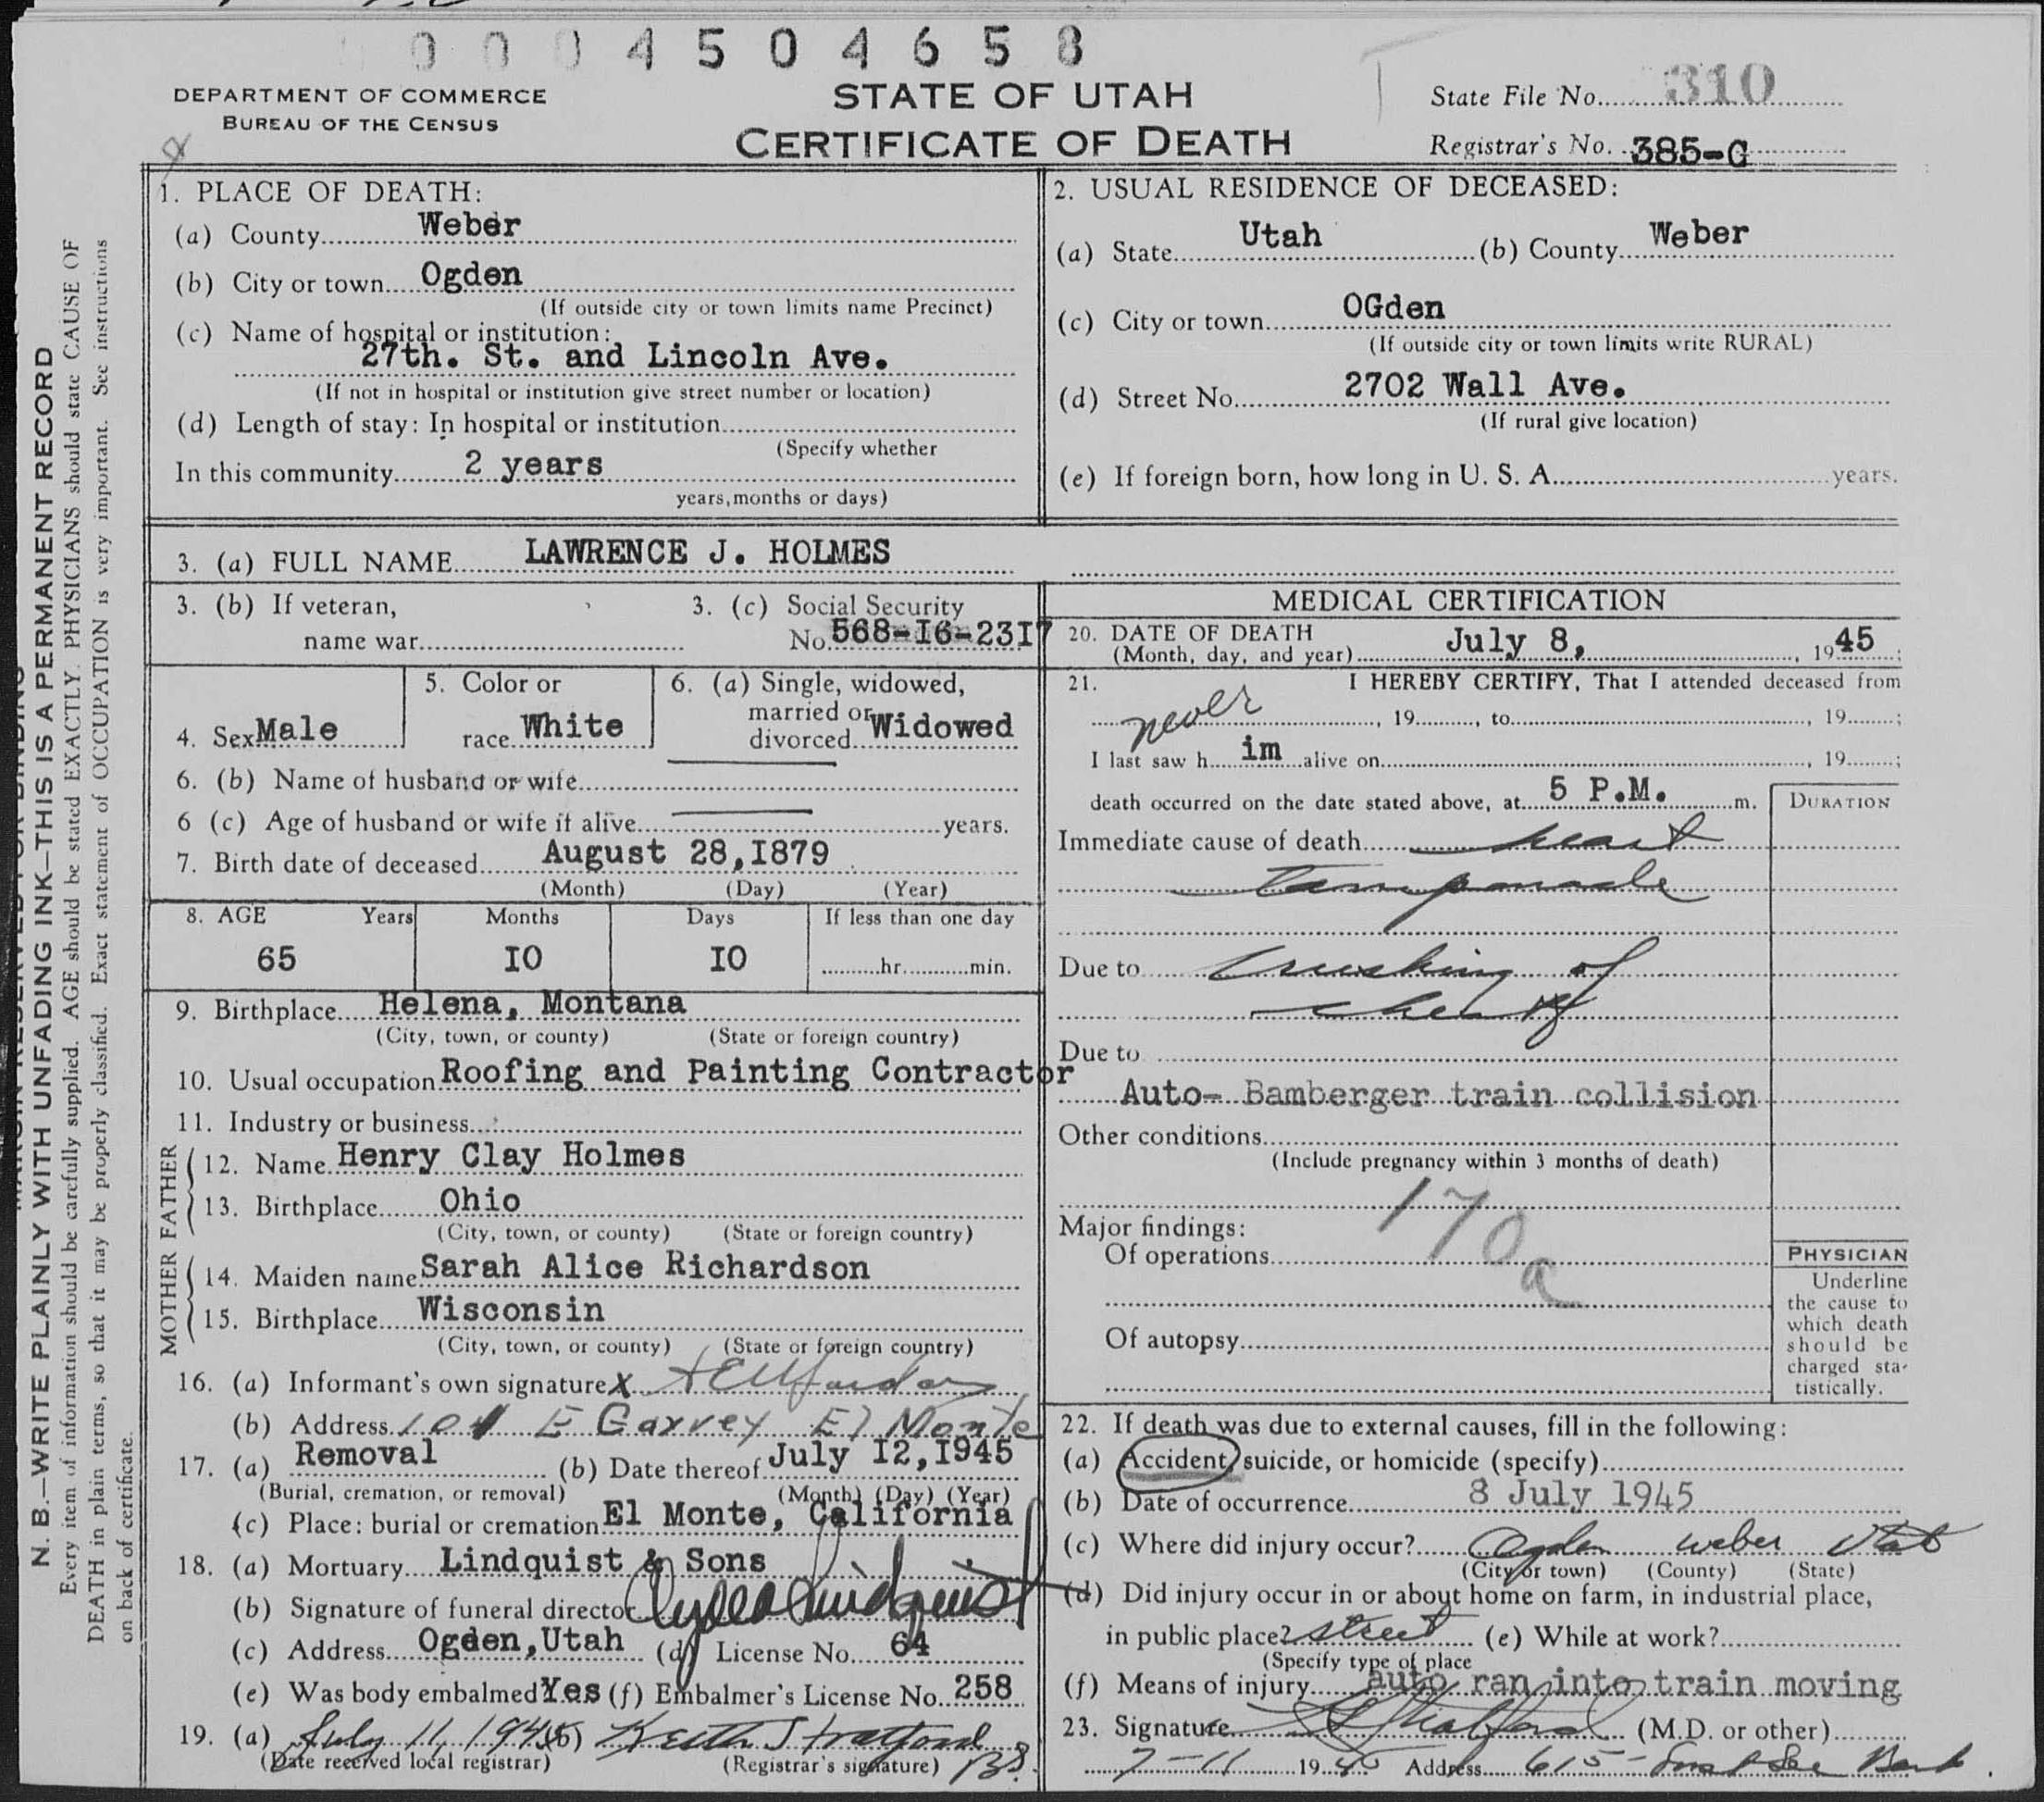 0004504658
DEPARTMENT OF COMMERCE
BUREAU OF THE CENSUS
STATE OF UTAH
CERTIFICATE OF DEATH
State File No. 310
Registrar's No. 385-G
N. B.—WRITE PLAINLY WITH UNFADING INK—THIS IS A PERMANENT RECORD
Every item of information should be carefully supplied. AGE should be stated EXACTLY. PHYSICIANS should state CAUSE OF
DEATH in plain terms, so that it may be properly classified. Exact statement of OCCUPATION is very important. See instructions
on back of certificate.
1. PLACE OF DEATH:
(a) County Weber
(b) City or town Ogden
(If outside city or town limits name Precinct)
(c) Name of hospital or institution:
27th. St. and Lincoln Ave.
(If not in hospital or institution give street number or location)
(d) Length of stay: In hospital or institution
(Specify whether
In this community 2 years
years, months or days)
2. USUAL RESIDENCE OF DECEASED:
(a) State Utah (b) County Weber
(c) City or town OGden
(If outside city or town limits write RURAL)
(d) Street No. 2702 Wall Ave.
(If rural give location)
(e) If foreign born, how long in U. S. A. years.
3. (a) FULL NAME LAWRENCE J. HOLMES
3. (b) If veteran,
name war
3. (c) Social Security
No. 568-I6-23I7
4. Sex Male
5. Color or
race White
6. (a) Single, widowed,
married or
divorced Widowed
6. (b) Name of husband or wife
6 (c) Age of husband or wife if alive years.
7. Birth date of deceased August 28,I879
(Month) (Day) (Year)
8. AGE Years Months Days If less than one day
65 IO IO hr. min.
9. Birthplace Helena, Montana
(City, town, or county) (State or foreign country)
10. Usual occupation Roofing and Painting Contractor
11. Industry or business
FATHER
12. Name Henry Clay Holmes
13. Birthplace Ohio
(City, town, or county) (State or foreign country)
MOTHER
14. Maiden name Sarah Alice Richardson
15. Birthplace Wisconsin
(City, town, or county) (State or foreign country)
16. (a) Informant's own signature X
(b) Address 101 E Garvey El Monte
17. (a) Removal (b) Date thereof July I2,I945
(Burial, cremation, or removal) (Month) (Day) (Year)
(c) Place: burial or cremation El Monte, California
18. (a) Mortuary Lindquist & Sons
(b) Signature of funeral director Clyde Lindquist
(c) Address Ogden,Utah (d) License No. 64
(e) Was body embalmed Yes (f) Embalmer's License No. 258
19. (a) July 11, 1945 (b) Keith Stratford
(Date received local registrar) (Registrar's signature) BS.
MEDICAL CERTIFICATION
20. DATE OF DEATH
(Month, day, and year) July 8, 1945
21. I HEREBY CERTIFY, That I attended deceased from
never , 19 , to , 19 ;
I last saw h im alive on , 19 ;
death occurred on the date stated above, at 5 P.M. m.
DURATION
Immediate cause of death heart
tamponade
Due to crushing of
chest
Due to
Auto- Bamberger train collision
Other conditions
(Include pregnancy within 3 months of death)
170a
Major findings:
Of operations
Of autopsy
PHYSICIAN
Underline
the cause to
which death
should be
charged sta-
tistically.
22. If death was due to external causes, fill in the following:
(a) Accident, suicide, or homicide (specify)
(b) Date of occurrence 8 July 1945
(c) Where did injury occur? Ogden Weber Utah
(City or town) (County) (State)
(d) Did injury occur in or about home on farm, in industrial place,
in public place? street (e) While at work?
(Specify type of place
(f) Means of injury auto ran into train moving
23. Signature (M.D. or other)
7-11 1945 Address 615